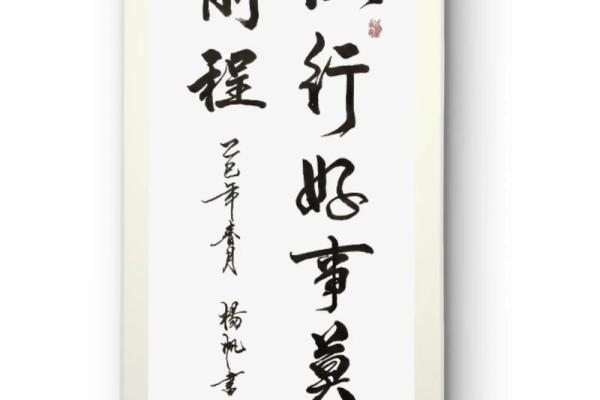 行好事莫
前程
乙巳年春月 楊帆書